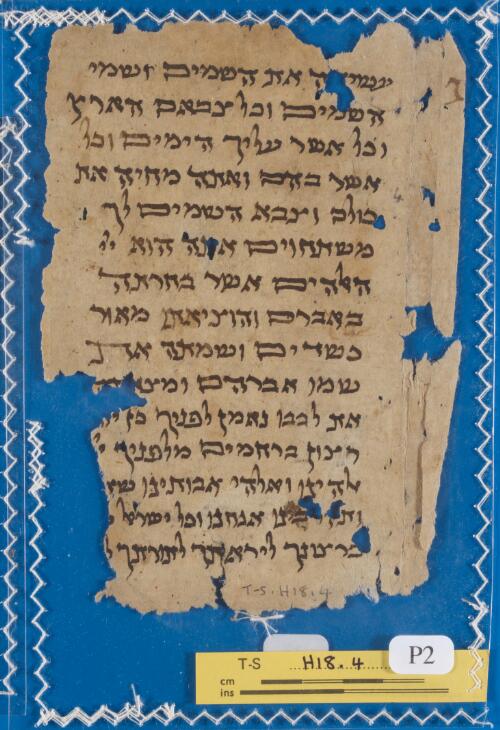 את השמים ושמי
השמים וכל צבאם הארץ
וכל אשר הימים וכל
אשר בהם ואתה מחיה את
כולם וצבא השמים לך
משתחוים אתה הוא
האלהים אשר בחרתה
באברם מאור
כשדים ושמתה
שמו אברהם
את לבבו נאמן לפניך כן
רצון ברחמים מלפניך
אלהינו ואלהי אבותינו
אנחנו וכל ישראל
ברצונך ליראתך לתורתך
T-S. H18.4
T-S H18.4 P2
cm
ins